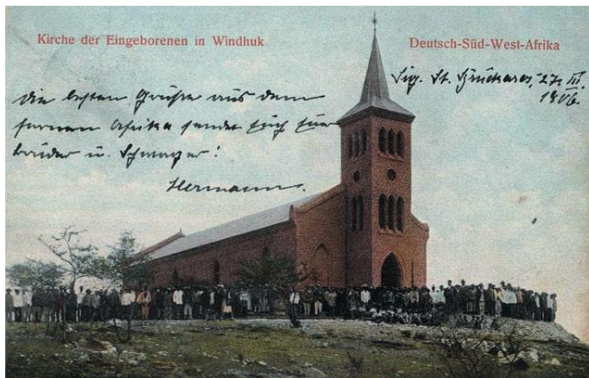 Kirche der Eingeborenen in Windhuk
Deutsch-Süd-West-Afrika
1906.
die besten Grüße aus dem
fernen Afrika sendet Euch Euer
Bruder u. Schwager!
Hermann.